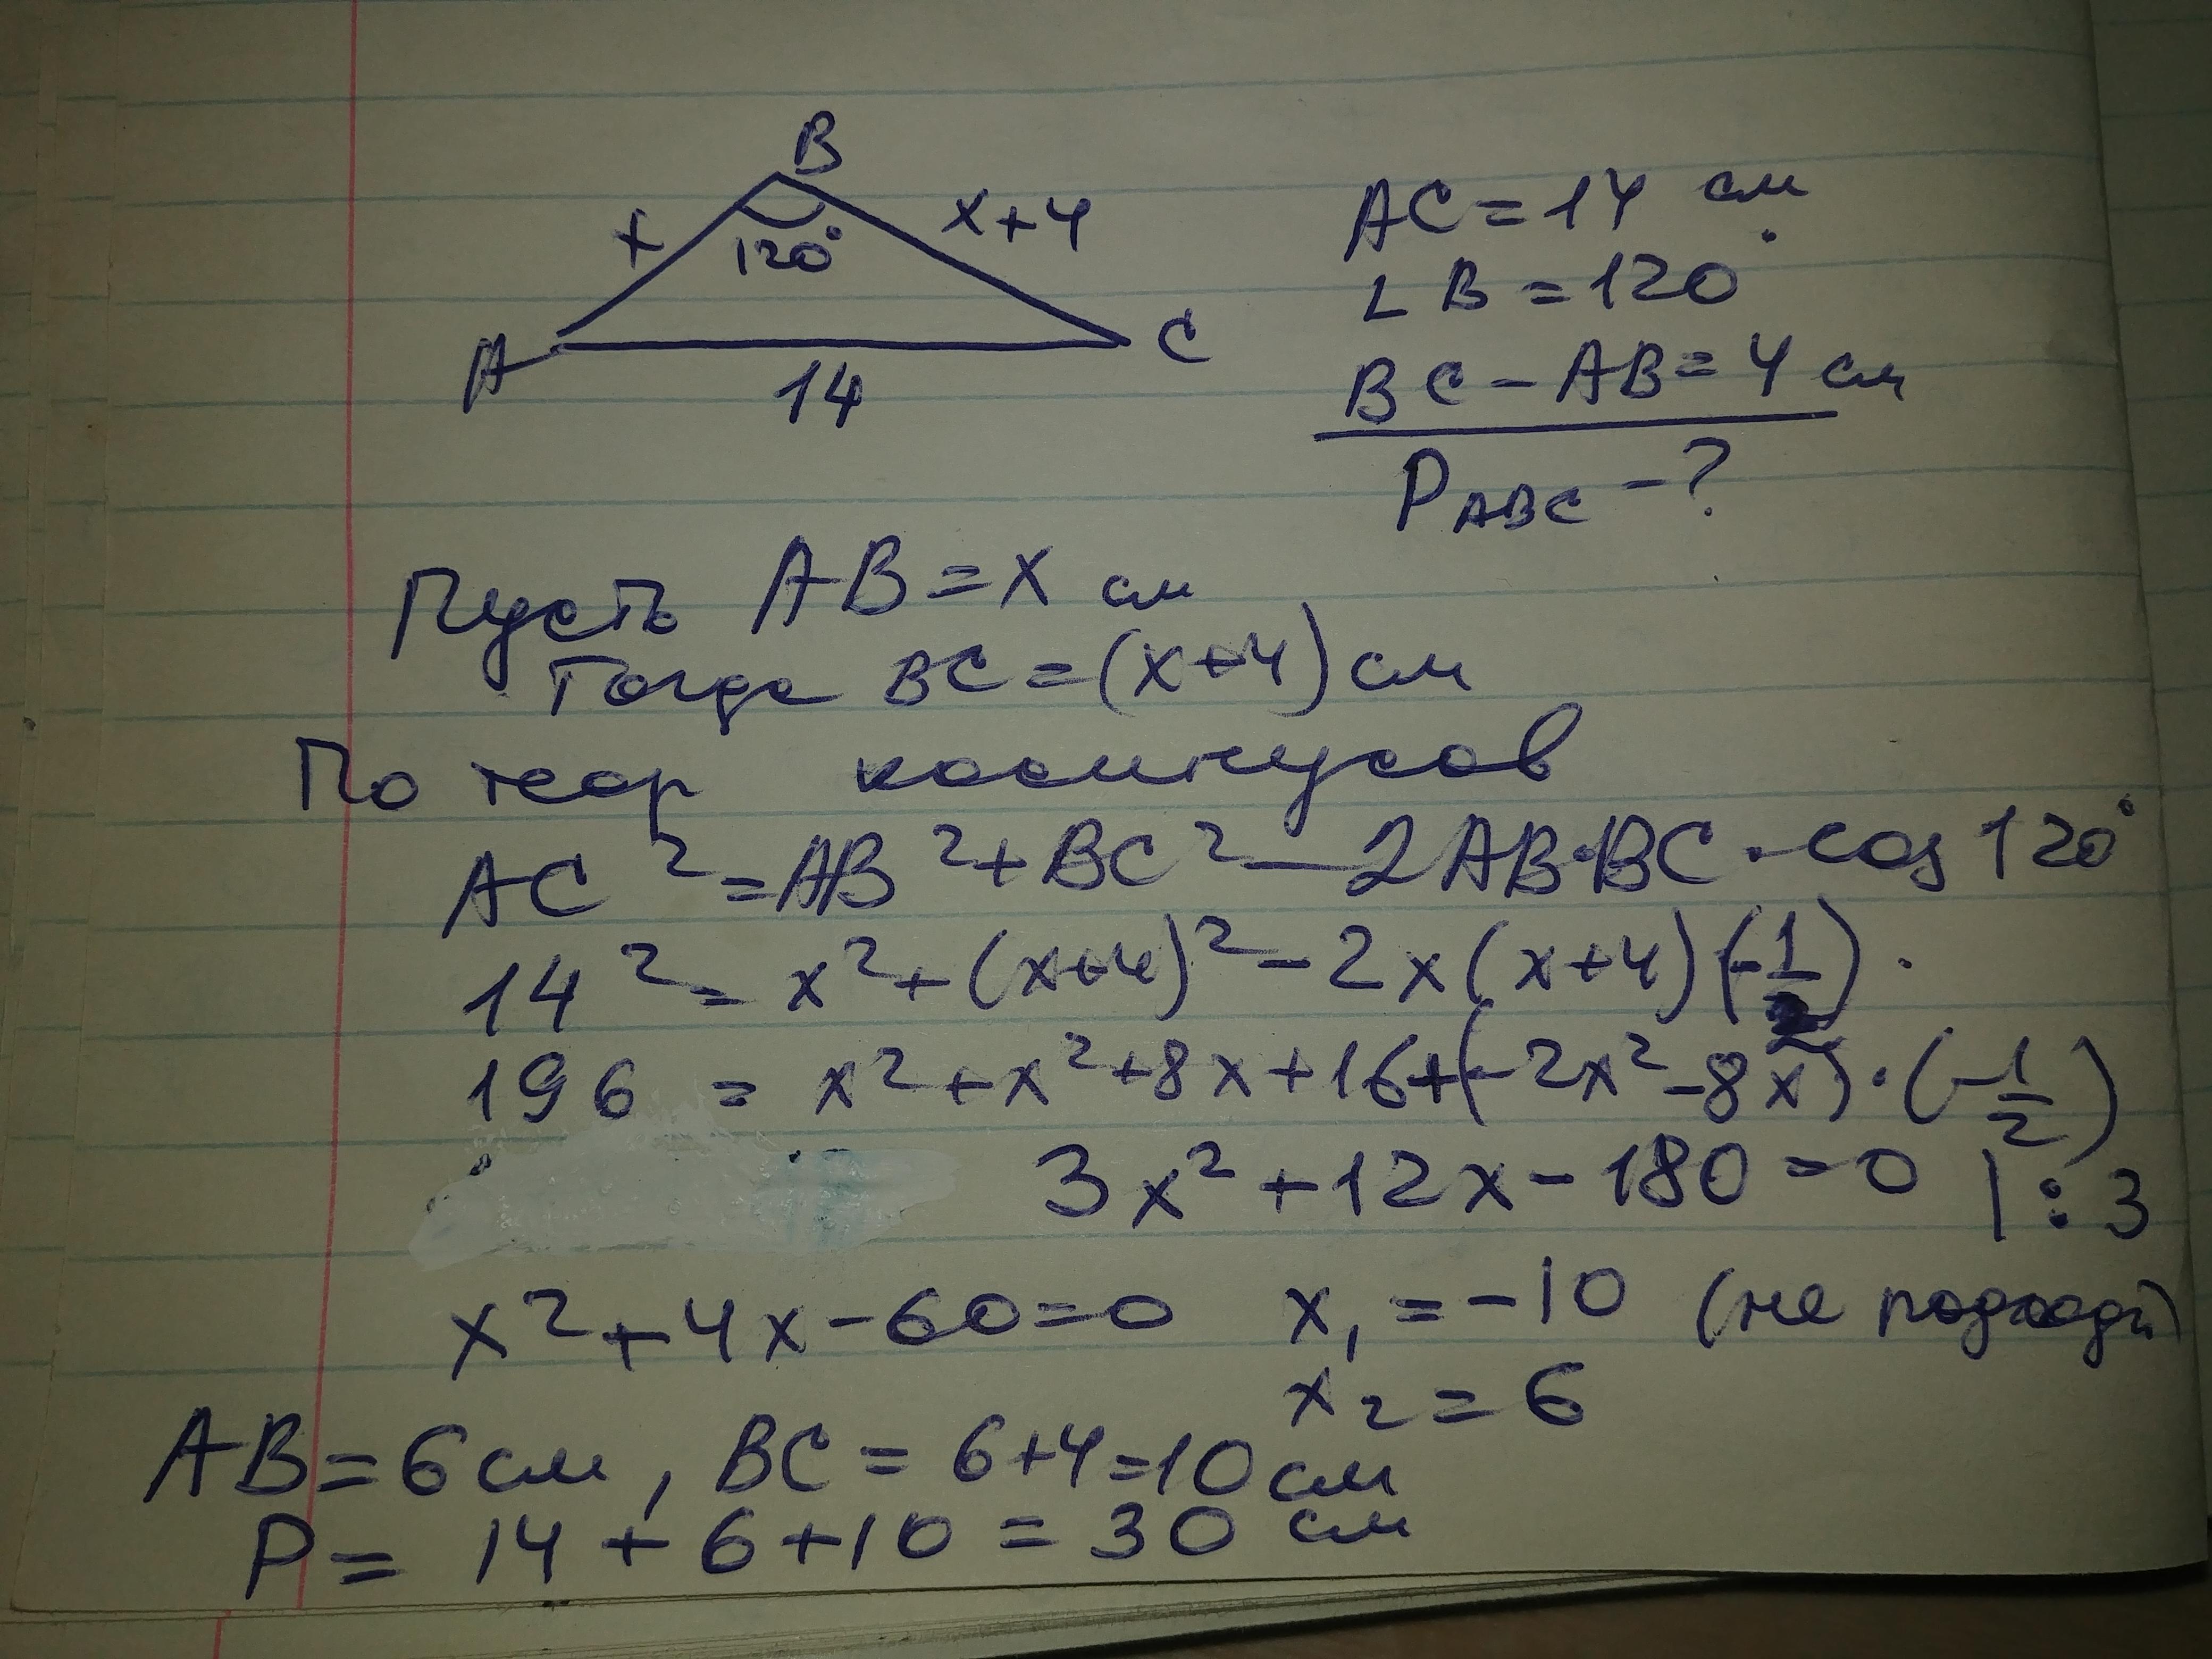 B
x
x+4
120°
A
C
14
AC=14 см
∠B=120°
BC-AB=4 см
P ABC - ?
Пусть AB=x см
Тогда BC=(x+4) см
По теор косинусов
AC²=AB²+BC²-2AB·BC·cos120°
14²=x²+(x+4)²-2x(x+4)(-1/2)·
196=x²+x²+8x+16+(-2x²-8x)·(-1/2)
3x²+12x-180=0 |:3
x²+4x-60=0 x₁=-10 (не подходи)
x₂=6
AB=6см, BC=6+4=10см
P=14+6+10=30 см